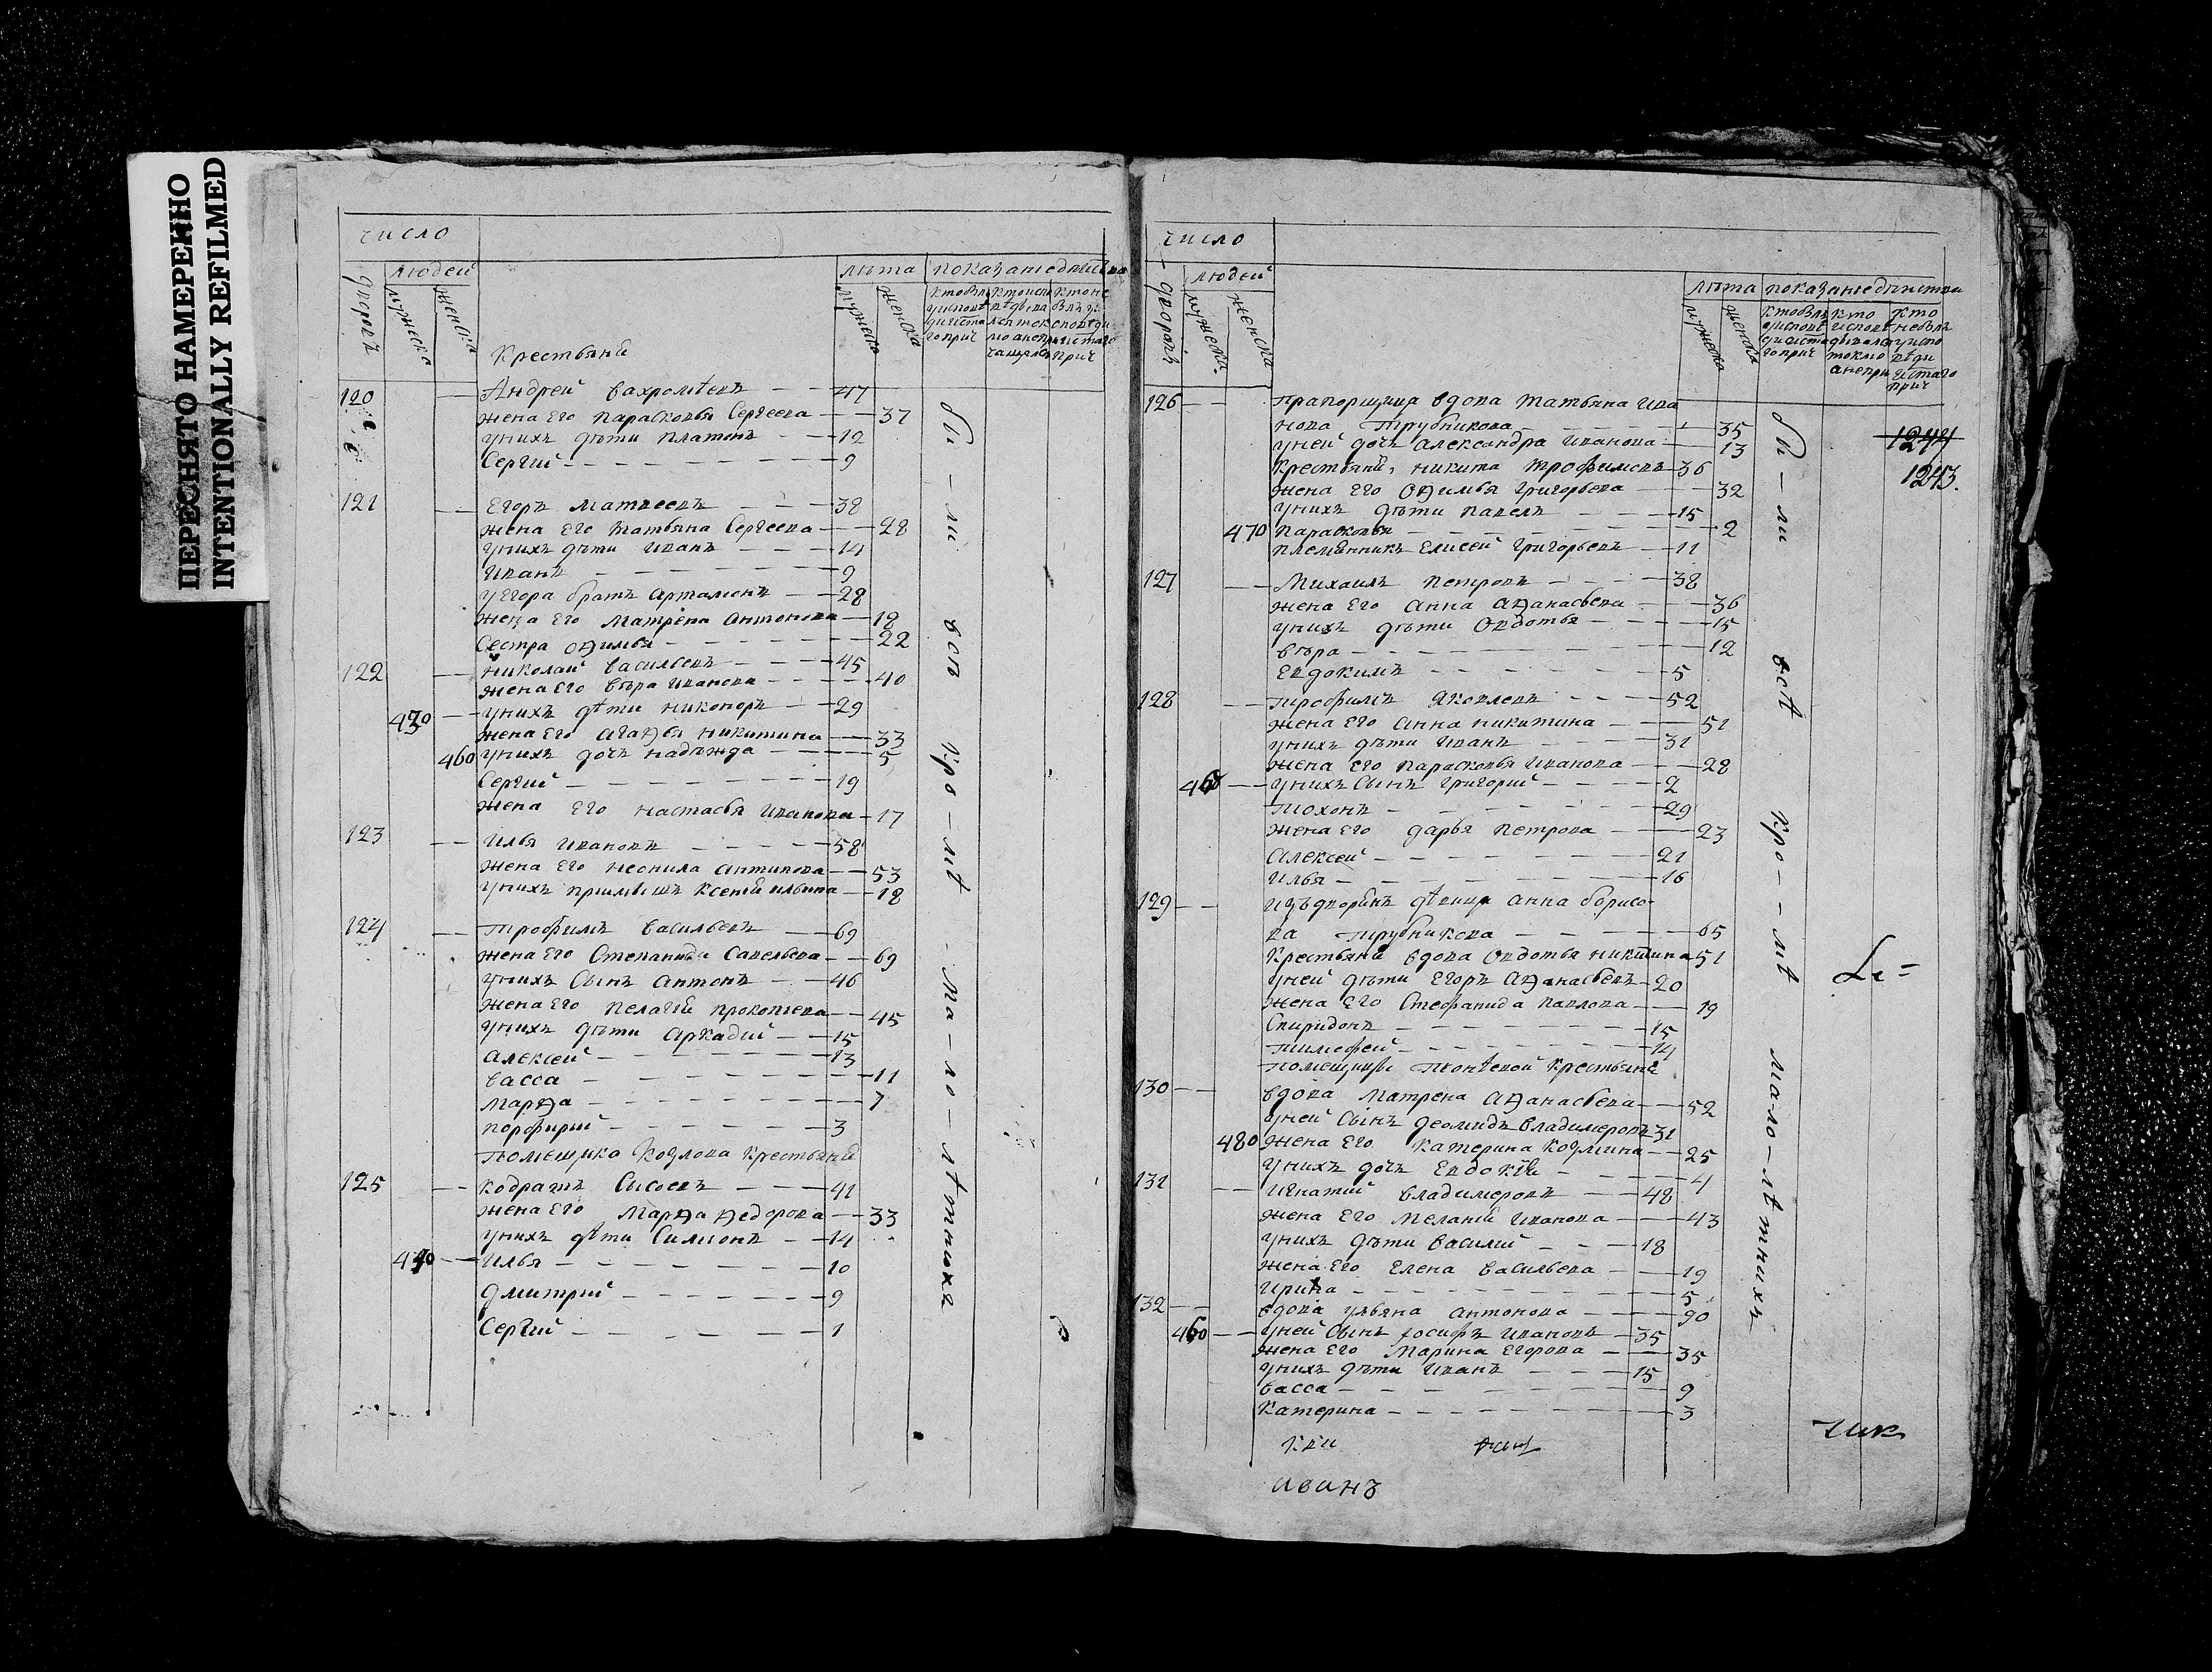 ПЕРЕСНЯТО НАМЕРЕННО
INTENTIONALLY REFILMED
число
людей
лѣта
дворовъ
мужеска
женска
мужеска
женска
Крестьяне
120 Андрей Вахромѣевъ 47
жена Его Парасковья Сергеева 37
унихъ дѣти Платонъ 12
Сергий 9
121 Егоръ Матвеевъ 38
жена Его Татьяна Сергеева 28
унихъ дѣти Иванъ 14
Иванъ 9
уЕгора братъ Артамонъ 28
жена Его Матрена Антонова 18
Сестра Офимья 22
122 Николай Васильевъ 45
жена Его Вѣра Иванова 40
430 унихъ дѣти Никоноръ 29
жена Его Агафья Никитина 33
460 унихъ дочь Надежда 5
Сергий 19
жена Его Настасья Иванова 17
123 Илья Ивановъ 58
жена Его Неонила Антипова 53
унихъ Ксения Ильина 18
124 Трофимъ Васильевъ 69
жена Его Степанида Савельева 69
унихъ Сынъ Антонъ 46
жена Его Пелагия Прокопиева 45
унихъ дѣти Аркадий 15
Алексей 13
Васса 11
Марѳа 7
Порфирий 3
Помещика Козлова Крестьяне
125 Кодратъ Сысоевъ 41
жена Его Марѳа Ѳедорова 33
унихъ дѣти Симионъ 14
440 Илья 10
Дмитрий 9
Сергий 1
бы-ли вси кро-мѣ ма-ло-лѣтнихъ
число
людей
лѣта
дворовъ
мужеска
женска
мужеска
женска
126 Прапорщица вдова Татьяна Ива
нова Трубникова 35
уней дочь Александра Иванова 13
Крестьяне, Никита Трофимовъ 36
жена Его Офимья Григорьева 32
унихъ дѣти Павелъ 15
470 Парасковья 2
племянникъ Елисей Григорьевъ 11
1244
1243.
127 Михаилъ Петровъ 38
жена Его Анна Аѳанасьева 36
унихъ дѣти Овдотья 15
Вѣра 12
Евдокимъ 5
128 Трофимъ Яковлевъ 52
жена Его Анна Никитина 51
унихъ дѣти Иванъ 31
жена Его Парасковья Иванова 28
унихъ Сынъ Григорий 2
Тихонъ 29
жена Его Дарья Петрова 23
Алексей 21
Илья 16
129 дѣвица Анна Борисо
ва Трубникова 65
Крестьяне вдова Овдотья Никитина 51
уней дѣти Егоръ Аѳанасьевъ 20
жена Его Стефанида Павлова 19
Спиридонъ 15
Тимофей 14
Помещицы Крестьяне
130 вдова Матрена Аѳанасьева 52
уней Сынъ Деомидъ Владимеровъ 31
480 жена Его Катерина Козмина 25
унихъ дочь Евдокия 4
131 Игнатий Владимеровъ 48
жена Его Мелания Иванова 43
унихъ дѣти Василий 18
жена Его Елена Васильева 19
Ирина 5
132 вдова Ульяна Антонова 90
460 уней Сынъ Иосифъ Ивановъ 35
жена Его Марина Егорова 35
унихъ дѣти Иванъ 15
Васса 9
Катерина 3
бы-ли всѣ кро-мѣ мало-лѣтнихъ
Иванъ